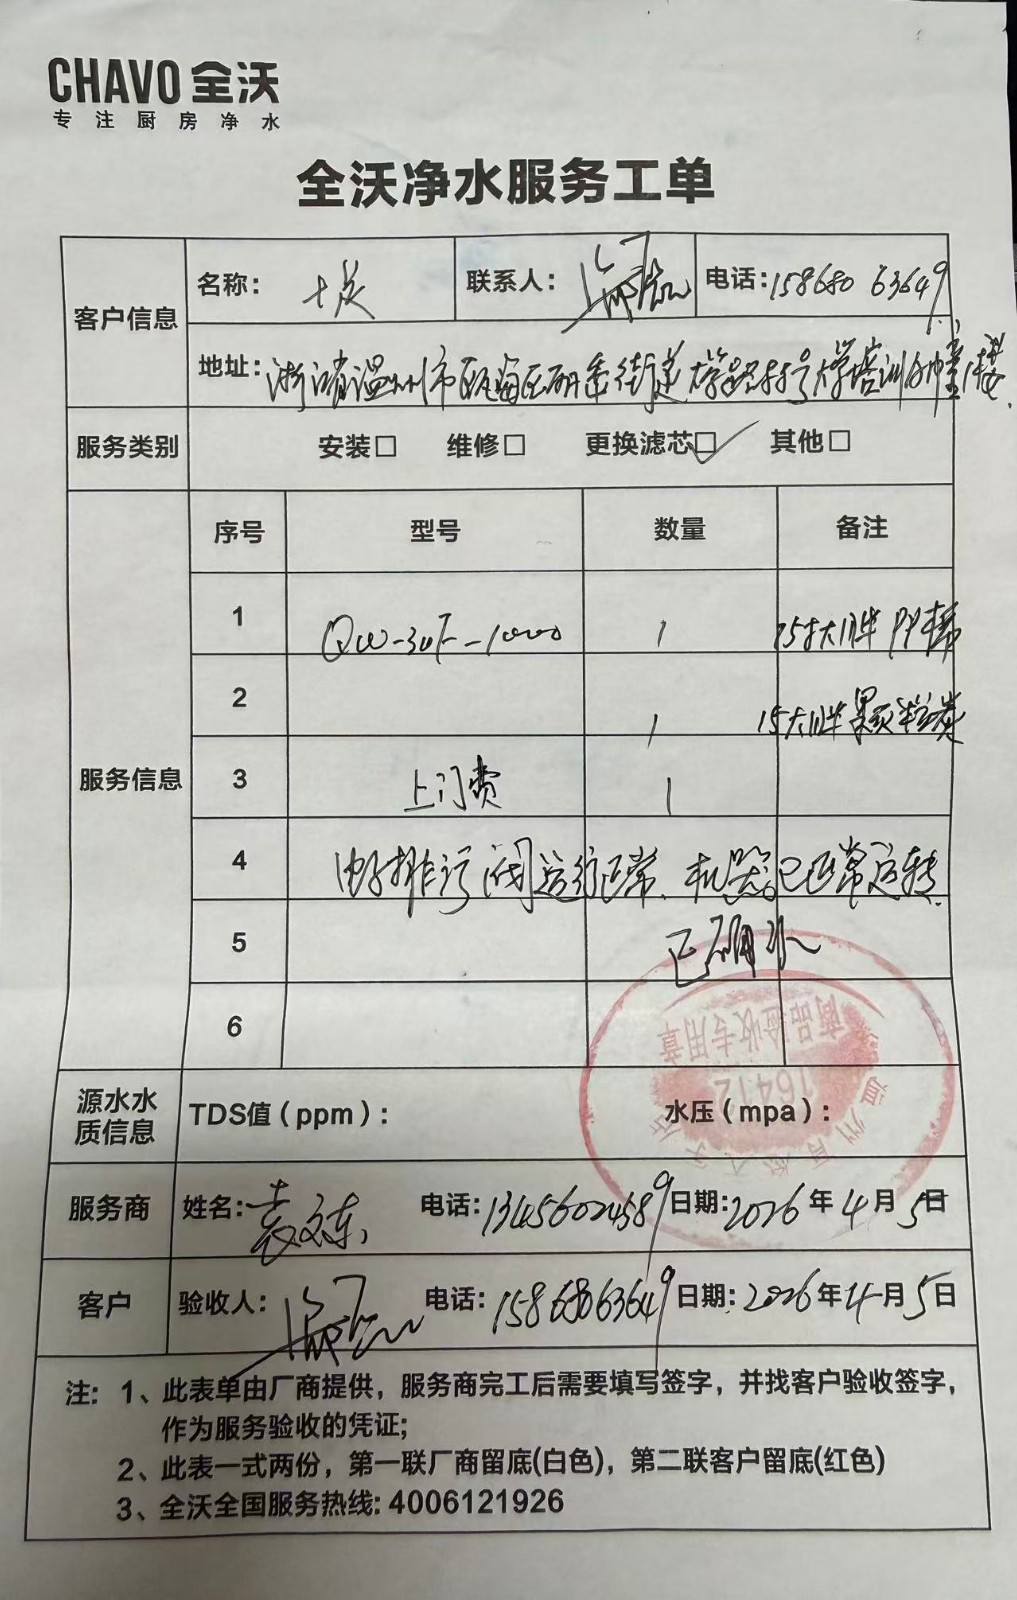 CHAVO 全沃
专注厨房净水
全沃净水服务工单
客户信息
名称：
联系人：
电话：158680 63649
地址：浙江省温州市瓯海区丽岙街道
服务类别 安装□ 维修□ 更换滤芯□✓ 其他□
服务信息
序号 型号 数量 备注
1 QW-30F-1000 1 15寸大胖 PP棉
2 1 15大胖颗粒炭
3 上门费 1
4 排污阀运行正常、机器已正常运转
5 已通水
6
商品验收专用章
16412
源水水质信息 TDS值（ppm）： 水压（mpa）：
服务商 姓名：袁文东 电话：13456024589 日期：2026年4月5日
客户 验收人： 电话：15868063649 日期：2026年4月5日
注：1、此表单由厂商提供，服务商完工后需要填写签字，并找客户验收签字，
作为服务验收的凭证；
2、此表一式两份，第一联厂商留底(白色)，第二联客户留底(红色)
3、全沃全国服务热线：4006121926